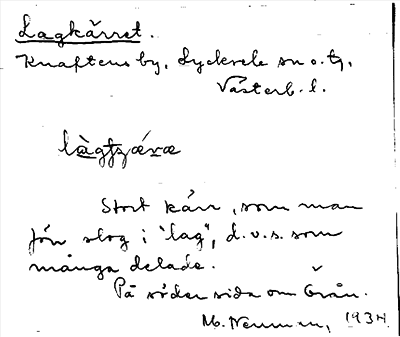 Lagkärret.
Knaftens by, Lycksele sn o. tg,
Västerb. l.
Stort kärr, som man
förr slog i "lag", d.v.s. som
många delade.
På söder sida om Örån.
1934